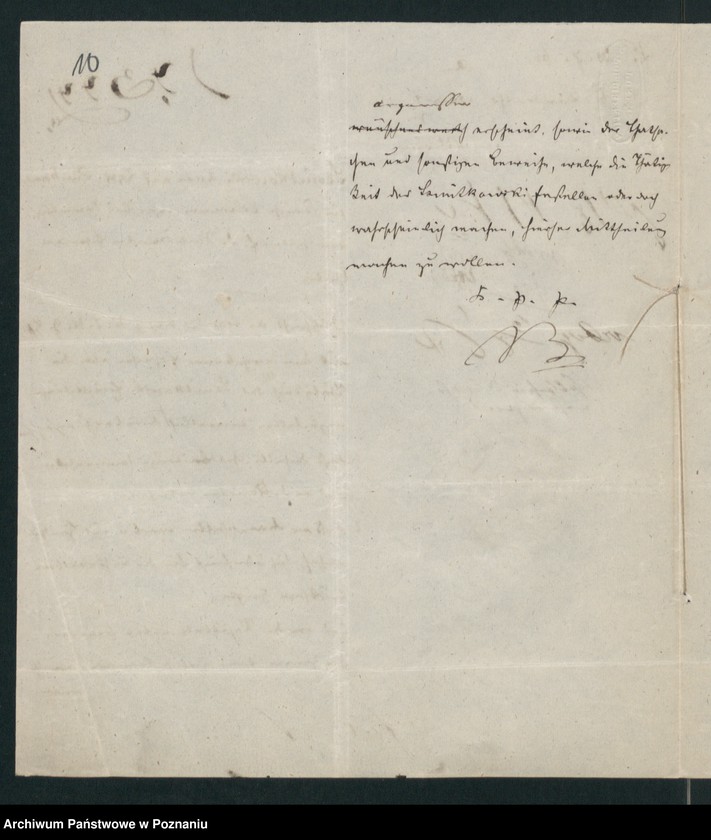 10
angemessen
wünschenswerth erscheint, sowie der Thatsa-
chen und sonstigen Beweise, welche die Thätig-
keit des feststellen oder doch
wahrscheinlich machen, hierher Mittheilung
machen zu wollen.
K. P. P.
Archiwum Państwowe w Poznaniu